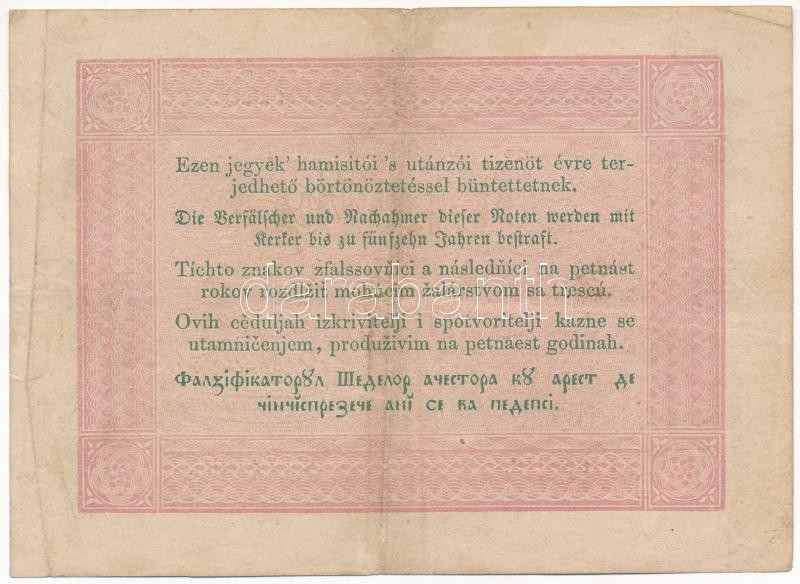 Ezen jegyek’ hamisitói ’s utánzói tizenöt évre ter-
jedhető börtönöztetéssel büntettetnek.
Die Verfälscher und Nachahmer dieser Noten werden mit
Kerker bis zu fünfzehn Jahren bestraft.
Tíchto znakov zfalssovňíci a následňíci na petnást
rokov rozdlžit mohúcim žalárstvom sa trescú.
Ovih cèduljah izkrivitelji i spotvoritelji kazne se
utamničenjem, produživim na petnaest godinah.
Фалꙁіфікаторꙋл Шеделор ачестора кꙋ арест де
чінчіспреꙁече анї се ва педепсі.
darabanth